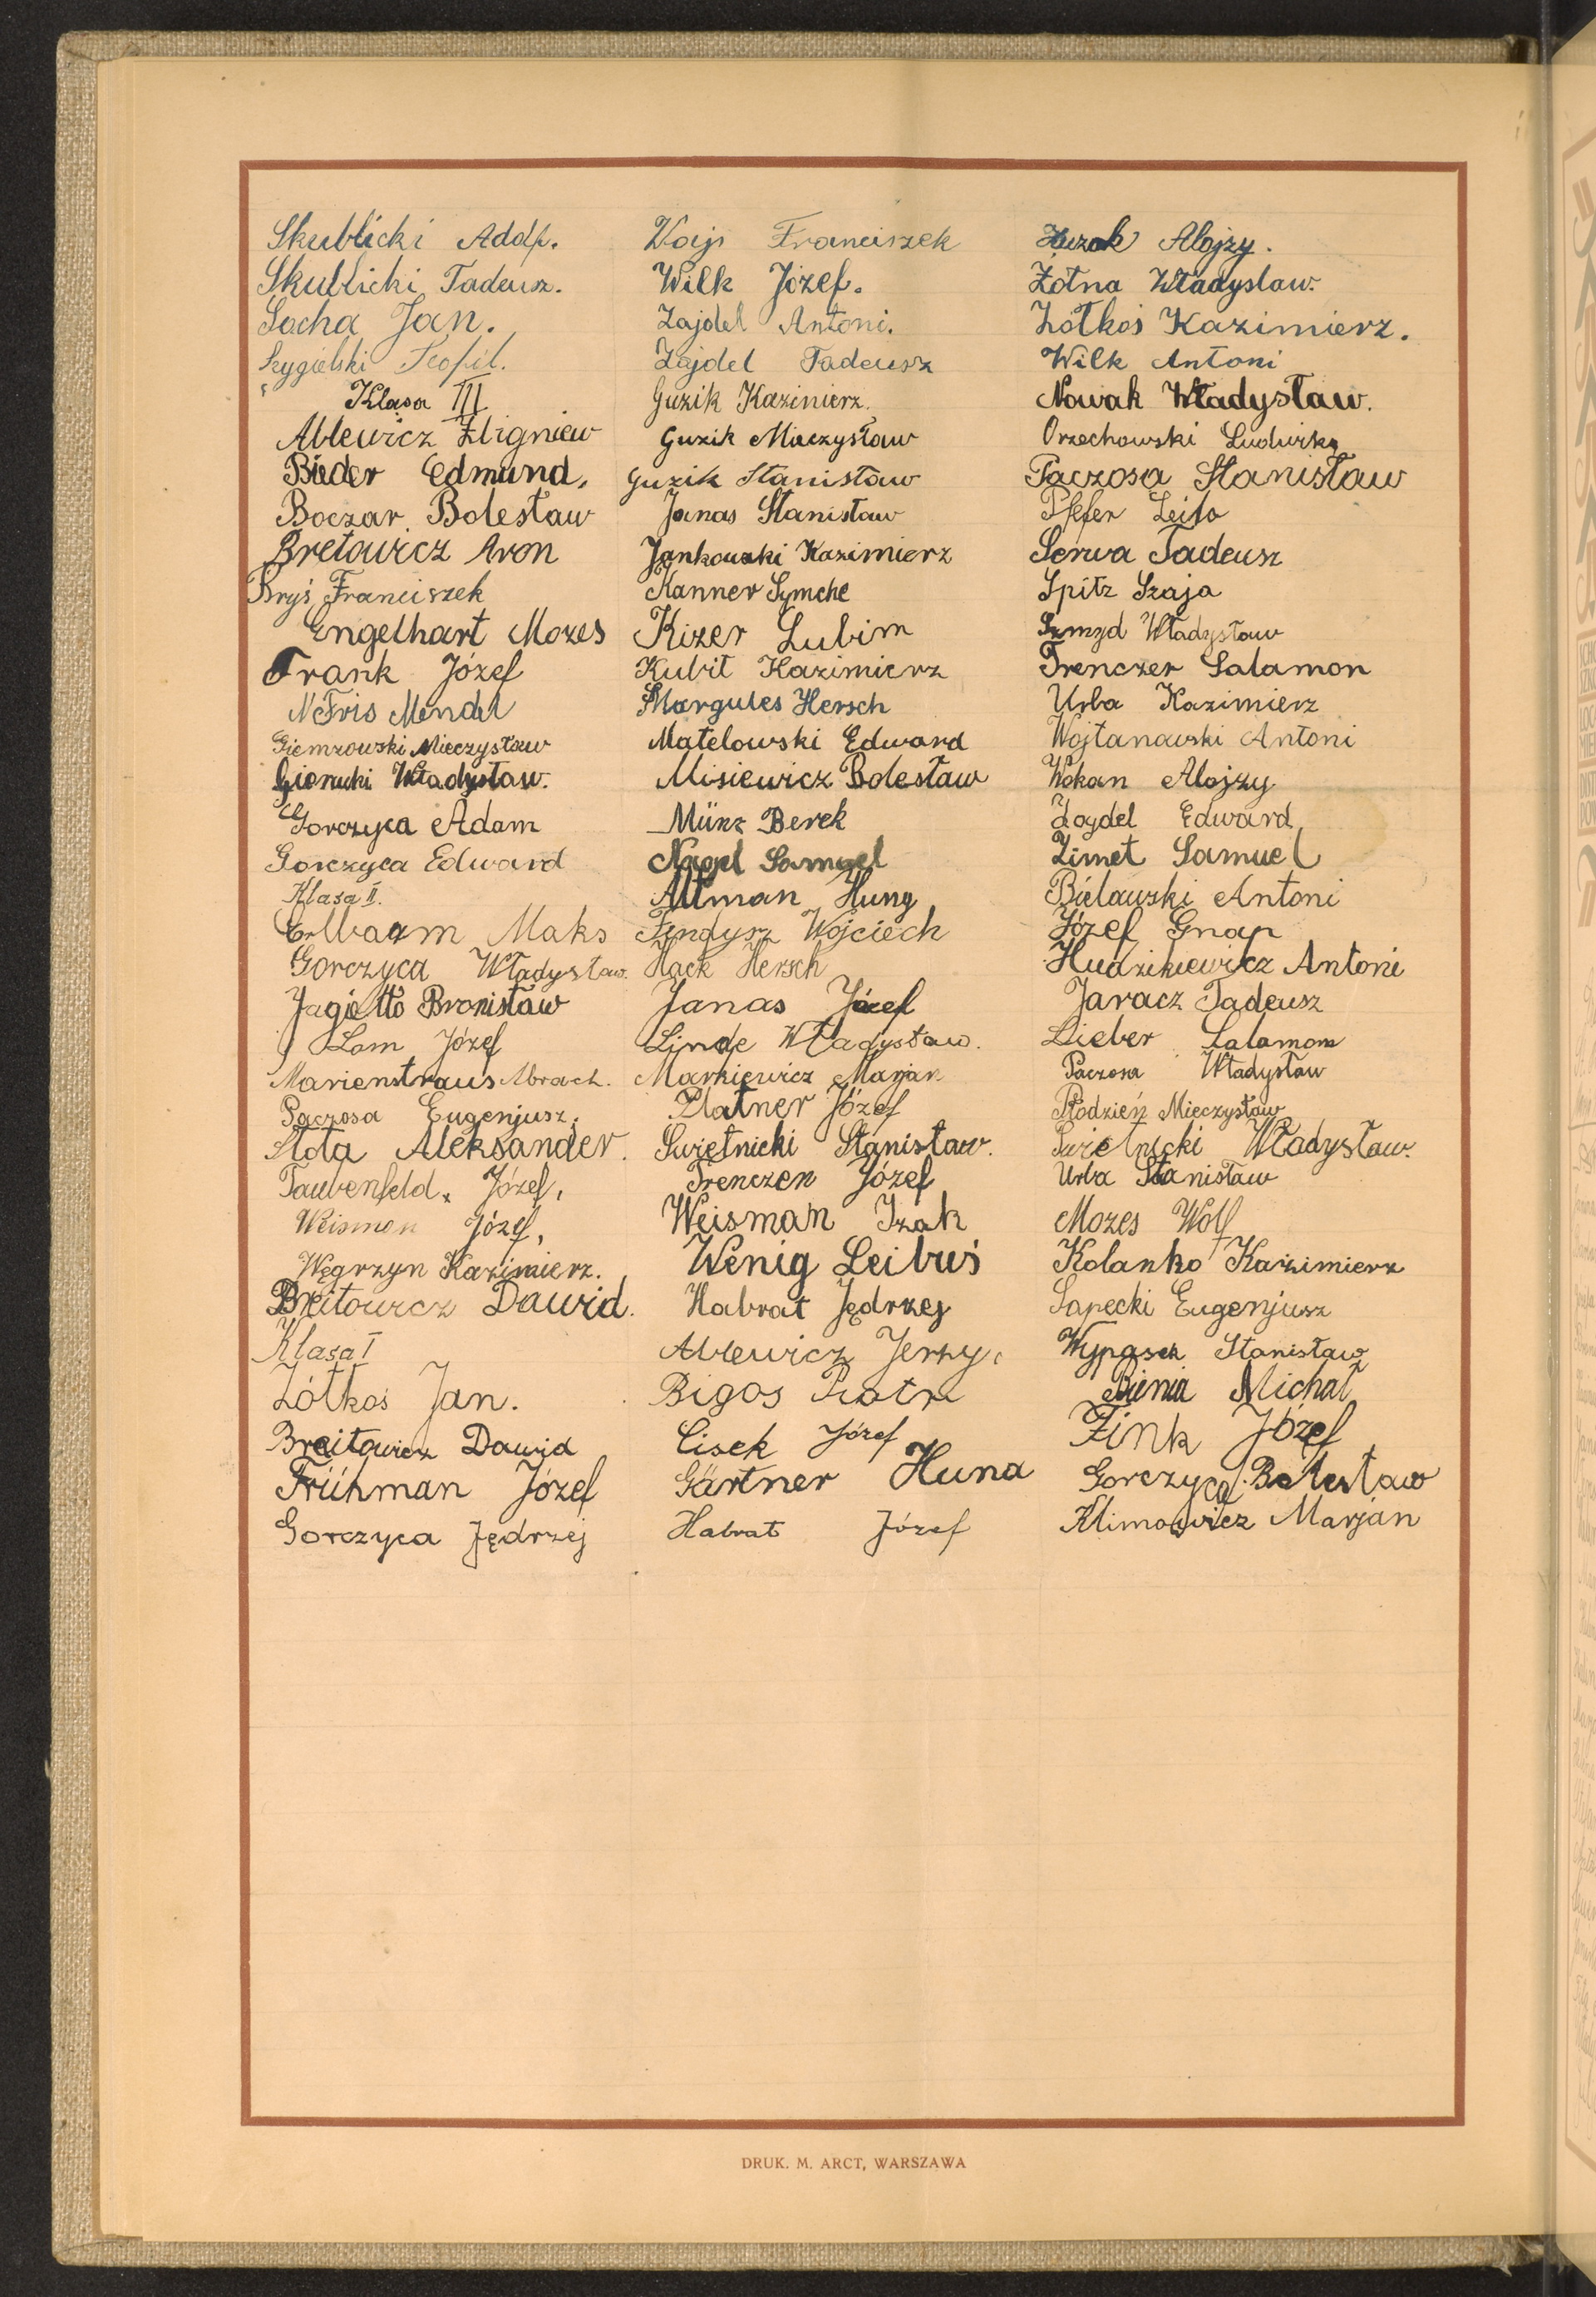 Skublicki Adolf. Wajs Franciszek Alojzy.
Skublicki Tadeusz. Wilk Józef. Żotna Władysław.
Socha Jan. Zajdel Antoni. Żołkoś Kazimierz.
Szygielski Teofil. Zajdel Tadeusz Wilk Antoni
Klasa III Guzik Kazimierz. Nowak Władysław.
Ablewicz Zbigniew Guzik Mieczysław Orzechowski Ludwik
Bieder Edmund, Guzik Stanisław Paczosa Stanisław
Boczar Bolesław Janas Stanisław Pfefer Leib
Bretowicz Aron Jankowski Kazimierz Serwa Tadeusz
Bryś Franciszek Kanner Symche Spitz Szaja
Engelhart Mozes Kizer Lubim Szmyd Władysław
Frank Józef Kubit Kazimierz Trenczer Salamon
Fris Mendel Margules Hersch Urba Kazimierz
Giemzowski Mieczysław Matelowski Edward Wojtanowski Antoni
Władysław. Misiewicz Bolesław Wokan Alojzy
Gorczyca Adam Münz Berek Zajdel Edward
Gorczyca Edward Nagel Samuel Zimet Samuel
Klasa II. Altman Huna Bielawski Antoni
Erlbaum Maks Fendysz Wojciech Józef Gnap
Gorczyca Władysław. Hack Hersch Hudzikiewicz Antoni
Jagiełło Bronisław Janas Józef Jaracz Tadeusz
Lom Józef Linde Władysław. Lieber Salamon
Marienstraus Abrach. Markiewicz Marjan Paczosa Władysław
Paczosa Eugenjusz. Platner Józef Płodzień Mieczysław
Słota Aleksander. Swietnicki Stanisław. Swietnicki Władysław.
Taubenfeld Józef, Trenczer Józef Urba Stanisław
Weisman Józef, Weisman Izak Mozes Wolf
Węgrzyn Kazimierz. Wenig Leibuś Kolanko Kazimierz
Breitowicz Dawid. Habrat Jędrzej Sapecki Eugenjusz
Klasa I Ablewicz Jerzy, Wypasek Stanisław
Żółkoś Jan. Bigos Piotr Bienia Michał
Breitowicz Dawid Cisek Józef Fink Józef
Frühman Józef Gärtner Huna Gorczyca Bolesław
Gorczyca Jędrzej Habrat Józef Klimowicz Marjan
DRUK. M. ARCT, WARSZAWA